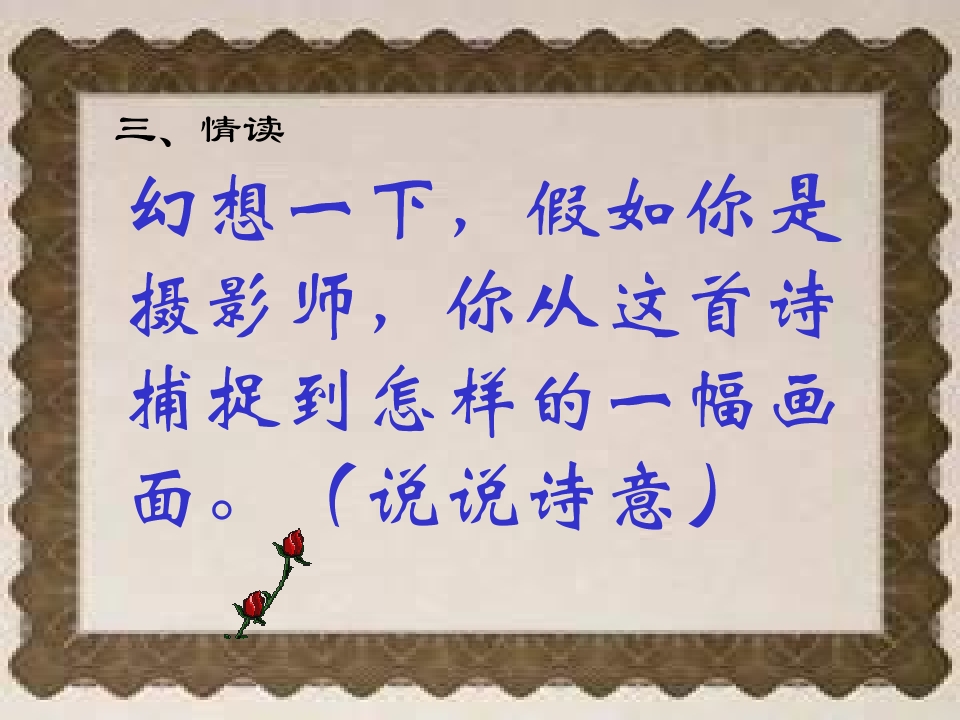 三、情读
幻想一下，假如你是
摄影师，你从这首诗
捕捉到怎样的一幅画
面。（说说诗意）